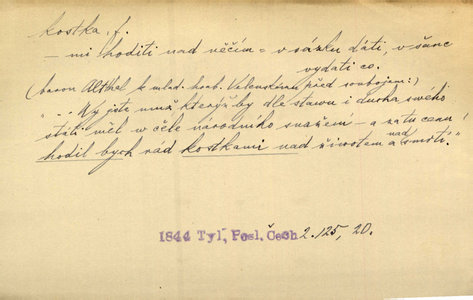 kostka, f.
– mi hoditi nad něčím = v sázku dáti, v šanc
vydati co.
(baron Althel k mlad. hrab. Valenskému před soubojem:)
" ... Vy jste muž který by dle stavu i ducha svého
státi měl v čele národního snažení – a za tu cenu
hodil bych rád kostkami nad životem a nad smrtí."
1844 Tyl, Posl. Čech 2. 125, 20.